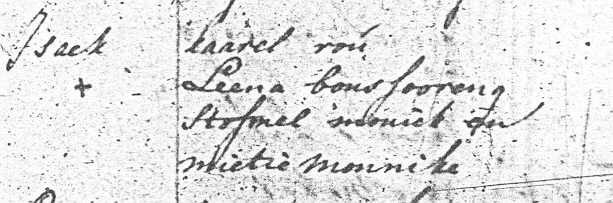 Isack kaarel roú
+ Leena bonsfooreng
Stofmel moniek en
mietie monnike